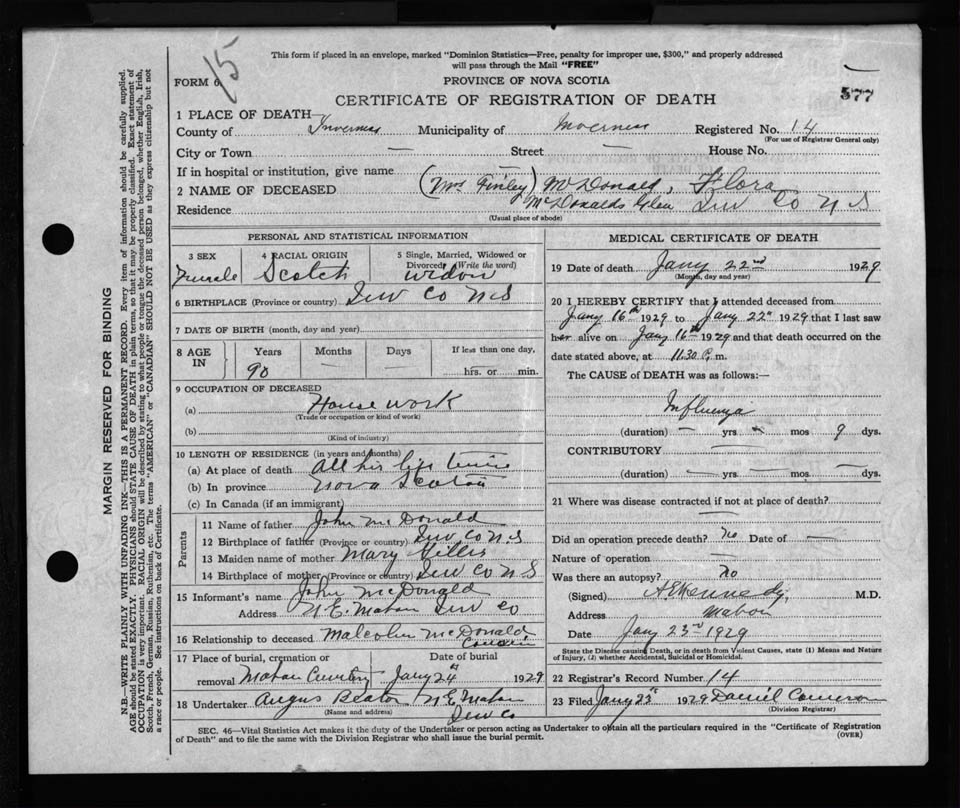 15
This form if placed in an envelope, marked "Dominion Statistics—Free, penalty for improper use, $300," and properly addressed
will pass through the Mail "FREE"
FORM 6
PROVINCE OF NOVA SCOTIA
577
CERTIFICATE OF REGISTRATION OF DEATH
1 PLACE OF DEATH—
County of Inverness Municipality of Inverness Registered No. 14
(For use of Registrar General only)
City or Town — Street — House No.
If in hospital or institution, give name —
2 NAME OF DECEASED (Mrs Finley) McDonald, Flora
Residence McDonalds Glen Inv Co N S
(Usual place of abode)
PERSONAL AND STATISTICAL INFORMATION
3 SEX 4 RACIAL ORIGIN 5 Single, Married, Widowed or
Divorced (Write the word)
Female Scotch Widow
6 BIRTHPLACE (Province or country) Inv Co N S
7 DATE OF BIRTH (month, day and year)
8 AGE IN Years Months Days If less than one day,
90 — — hrs. or min.
9 OCCUPATION OF DECEASED
(a) House work
(Trade or occupation or kind of work)
(b)
(Kind of industry)
10 LENGTH OF RESIDENCE (in years and months)
(a) At place of death All his life time
(b) In province Nova Scotia
(c) In Canada (if an immigrant)
Parents
11 Name of father John McDonald
12 Birthplace of father (Province or country) Inv Co N.S
13 Maiden name of mother Mary Gillis
14 Birthplace of mother (Province or country) Inv Co N S
15 Informant's name John McDonald
Address N. E. Mabou Inv Co
16 Relationship to deceased Malcolm McDonald
Cousin
17 Place of burial, cremation or Date of burial
removal Mabou Cemetery Jany 24th 1929
18 Undertaker Angus Beaton N E Mabou
(Name and address) Inv Co
MEDICAL CERTIFICATE OF DEATH
19 Date of death Jany 22nd 1929
(Month, day and year)
20 I HEREBY CERTIFY that I attended deceased from
Jany 16th 1929 to Jany 22" 1929 that I last saw
her alive on Jany 16th 1929 and that death occurred on the
date stated above, at 11.30 P. m.
The CAUSE of DEATH was as follows:—
Influenza
(duration) — yrs. — mos 9 dys.
CONTRIBUTORY —
(duration) — yrs. — mos. — dys.
21 Where was disease contracted if not at place of death?
—
Did an operation precede death? no Date of —
Nature of operation —
Was there an autopsy? No
(Signed) A S Kennedy, M.D.
Address Mabou
Date Jany 23rd 1929
State the Disease causing Death, or in death from Violent Causes, state (1) Means and Nature
of Injury, (2) whether Accidental, Suicidal or Homicidal.
22 Registrar's Record Number 14
23 Filed Jany 23" 1929 Daniel Cameron
(Division Registrar)
SEC. 46—Vital Statistics Act makes it the duty of the Undertaker or person acting as Undertaker to obtain all the particulars required in the "Certificate of Registration
of Death" and to file the same with the Division Registrar who shall issue the burial permit.
(OVER)
MARGIN RESERVED FOR BINDING
N.B.—WRITE PLAINLY WITH UNFADING INK—THIS IS A PERMANENT RECORD. Every item of information should be carefully supplied.
AGE should be stated EXACTLY. PHYSICIANS should STATE CAUSE OF DEATH in plain terms, so that it may be properly classified. Exact statement of
OCCUPATION is very important. RACIAL ORIGIN will be described by stating to what people or tongue the deceased person belonged, whether English, Irish,
Scotch, French, German, Russian, Ruthenian, etc. The terms "AMERICAN" or "CANADIAN" SHOULD NOT BE USED as they express citizenship but not
a race or people. See instructions on back of Certificate.